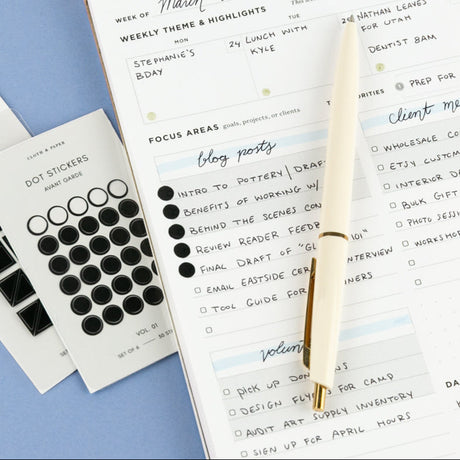 WEEK OF March
WEEKLY THEME & HIGHLIGHTS
MON
24
STEPHANIE'S
BDAY
TUE
LUNCH WITH
KYLE
NATHAN LEAVES
FOR UTAH
DENTIST 8AM
PREP FOR
FOCUS AREAS goals, projects, or clients
blog posts
INTRO TO POTTERY / DRAFT
BENEFITS OF WORKING W/
BEHIND THE SCENES
REVIEW READER
FINAL DRAFT OF
EMAIL EASTSIDE INTERVIEW
TOOL GUIDE FOR
client
WHOLESALE
ETSY
INTERIOR
BULK GIFT
PHOTO
PICK UP
DESIGN FOR CAMP
AUDIT ART SUPPLY INVENTORY
SIGN UP FOR APRIL HOURS
CLOTH & PAPER
DOT STICKERS
AVANT GARDE
VOL. 01
SET OF 6